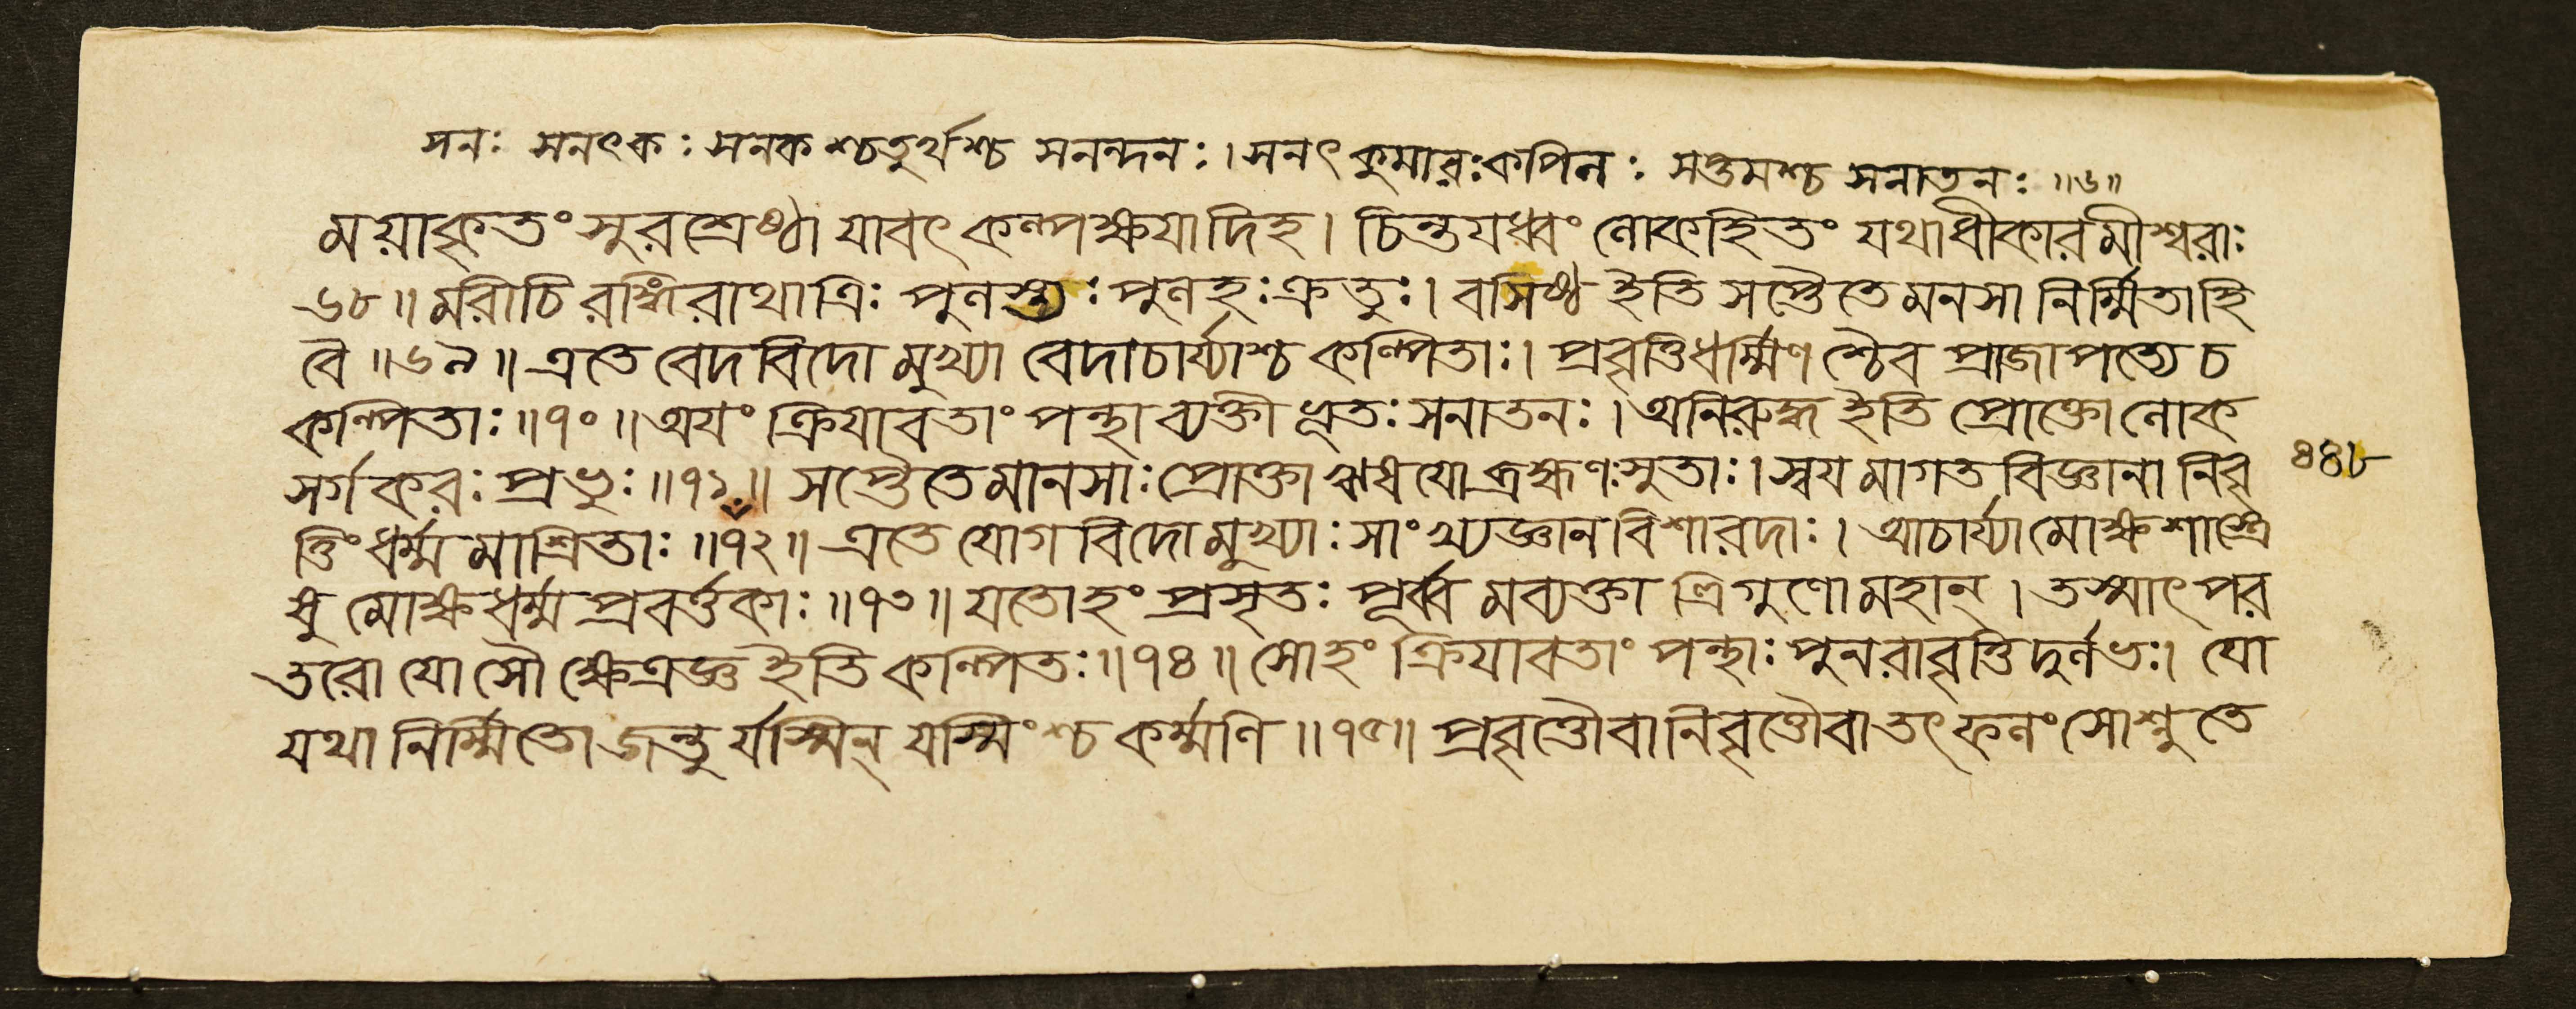 সনঃ সনৎকঃ সনকশ্চতুর্থশ্চ সনন্দনঃ। সনৎকুমারঃ কপিলঃ সপ্তমশ্চ সনাতনঃ ॥৬॥
ময়াকৃতং সুরশ্রেষ্ঠা যাবৎ কল্পক্ষয়াদিহ। চিন্তয়ধ্বং লোকহিতং যথাধীকারমীশ্বরাঃ
৬৮॥ মরীচিরঙ্গিরাথাত্রিঃ পুলস্ত্যঃ পুলহঃ ক্রতুঃ। বসিষ্ঠ ইতি সপ্তৈতে মনসা নির্ম্মিতাহি
বৈ ॥৬৯॥ এতে বেদবিদো মুখ্যা বেদাচার্য্যাশ্চ কল্পিতাঃ। প্রবৃত্তিধর্ম্মিণশ্চৈব প্রাজাপত্যে চ
কল্পিতাঃ ॥৭০॥ অয়ং ক্রিয়াবতাং পন্থা ব্যক্তী ভূতঃ সনাতনঃ। অনিরুদ্ধ ইতি প্রোক্তো লোক
সর্গকরঃ প্রভুঃ ॥৭১॥ সপ্তৈতে মানসাঃ প্রোক্তা ঋষয়ো ব্রহ্মণঃ সুতাঃ। স্বয়মাগতবিজ্ঞানা নিবৃ
৪৪৮
ত্তিং ধর্ম্মমাশ্রিতাঃ ॥৭২॥ এতে যোগবিদো মুখ্যাঃ সাংখ্যজ্ঞানবিশারদাঃ। আচার্য্যা মোক্ষশাস্ত্রে
ষু মোক্ষধর্ম্মপ্রবর্ত্তকাঃ ॥৭৩॥ যতোহং প্রসৃতঃ পূর্ব্বমব্যক্তা ত্রিগুণো মহান্। তস্মাৎ পর
তরো যোসৌ ক্ষেত্রজ্ঞ ইতি কল্পিতঃ ॥৭৪॥ সোহং ক্রিয়াবতাং পন্থাঃ পুনরাবৃত্তিদুর্লভঃ। যো
যথা নির্ম্মিতো জন্তুর্যস্মিন্ যস্মিংশ্চ কর্ম্মণি ॥৭৫॥ প্রবৃত্তৌ বা নিবৃত্তৌ বা তৎফলং সোশ্নুতে